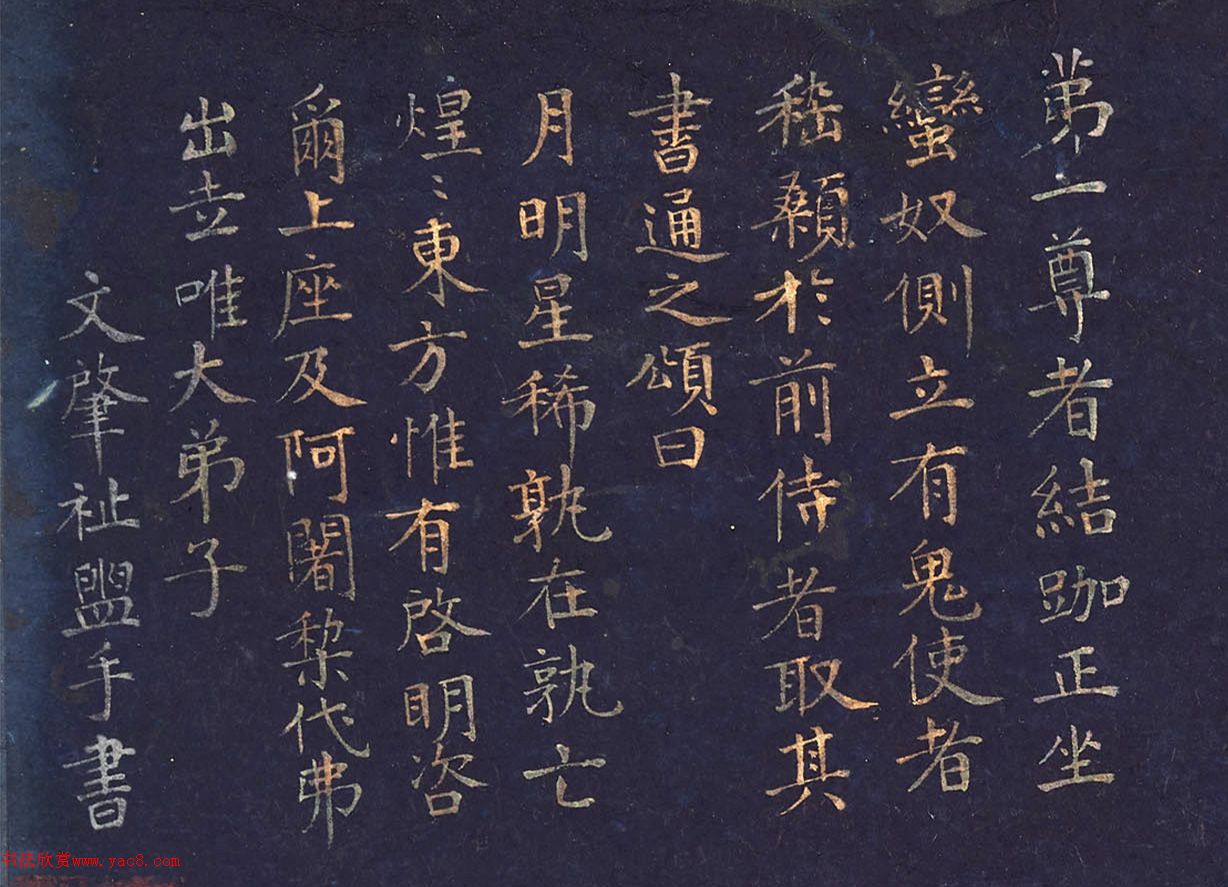 弟一尊者結跏正坐
蠻奴側立有鬼使者
稽顙於前侍者取其
書通之頌曰
月明星稀孰在孰亡
煌〻東方惟有啓明咨
爾上座及阿闍棃代弗
出世唯大弟子
文肇祉盥手書
书法欣赏www.yac8.com